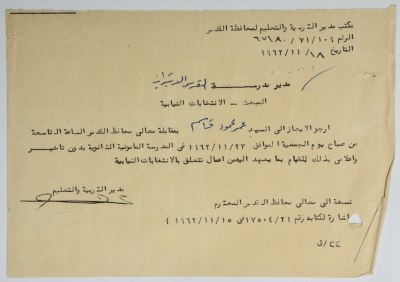 مكتب مدير التربية والتعليم لمحافظة القدس
الرقم ١٠٤/ ٧١/
التاريخ ١٨/ ١١/ ١٩٦٢
مدير مدرسة
المبحث - الانتخابات النيابية
ارجو الايعاز الى السيد عمر محمود قاسم بمقابلة معالي محافظ القدس الساعة التاسعة
من صباح يوم الجمعة الموافق ١٩٦٢/١١/٢٣ في المدرسة المأمونية الثانوية بدون تأخير
واعلامي بذلك للقيام بما يعهد اليه من اعمال تتعلق بالانتخابات النيابية
مدير التربية والتعليم
نسخة الى معالي محافظ القدس المحترم
اشارة لكتابه رقم ١٧٥٠٤/٢١ في ١٩٦٢/١١/١٥ )